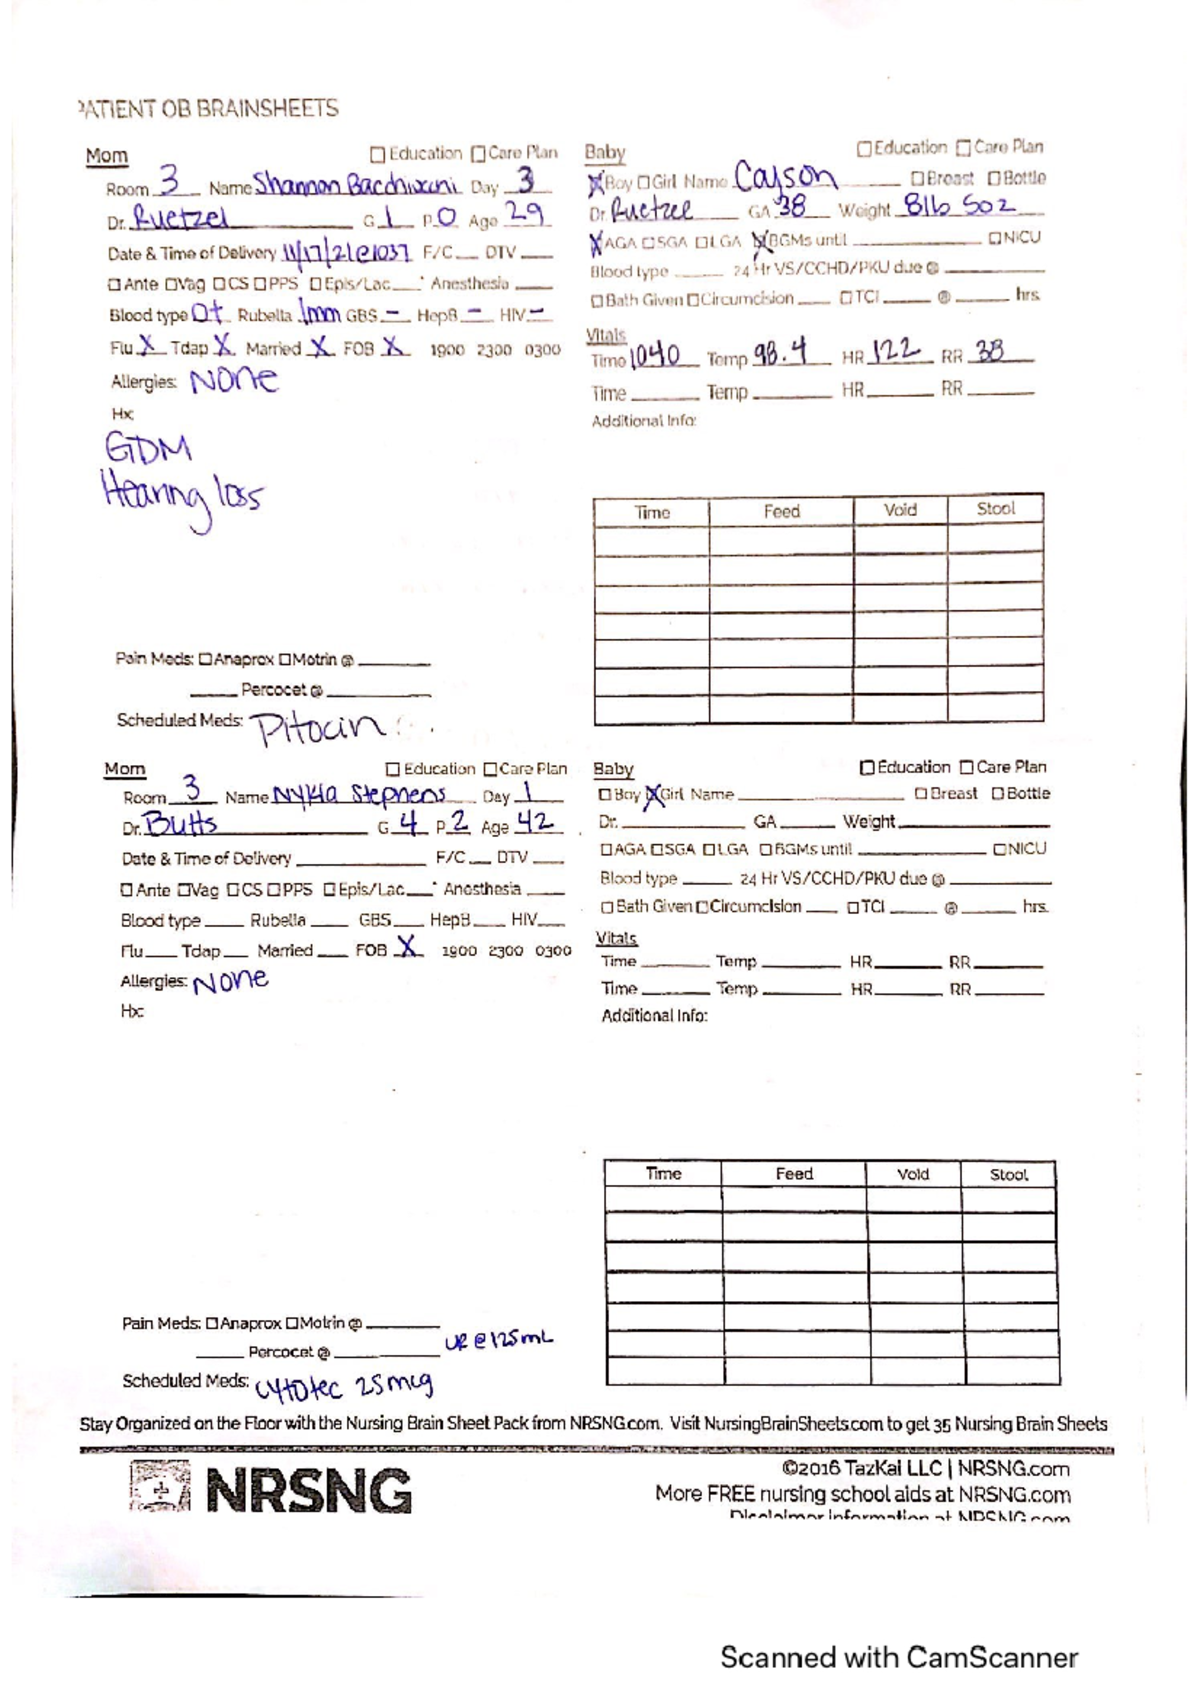 PATIENT OB BRAINSHEETS
Mom ☐ Education ☐ Care Plan
Room 3 Name Shannon Day 3
Dr. Ruetzel G 1 P 0 Age 29
Date & Time of Delivery 11/17/21 @ 1037 F/C DTV
☐ Ante ☐ Vag ☐ CS ☐ PPS ☐ Epis/Lac Anesthesia
Blood type O+ Rubella Imm GBS - HepB - HIV -
Flu X Tdap X Married X FOB X 1900 2300 0300
Allergies: None
Hx:
GDM
Hearing loss
Pain Meds: ☐ Anaprox ☐ Motrin @
Percocet @
Scheduled Meds: Pitocin
Baby ☐ Education ☐ Care Plan
☒ Boy ☐ Girl Name Cayson ☐ Breast ☐ Bottle
Dr. Ruetzel GA 38 Weight 8lb 5oz
☒ AGA ☐ SGA ☐ LGA ☒ BGMs until ☐ NICU
Blood type 24 Hr VS/CCHD/PKU due @
☐ Bath Given ☐ Circumcision ☐ TCI @ hrs.
Vitals
Time 1040 Temp 98.4 HR 122 RR 38
Time Temp HR RR
Additional Info:
Time Feed Void Stool
Mom ☐ Education ☐ Care Plan
Room 3 Name Nykia Stephens Day 1
Dr. Butts G 4 P 2 Age 42
Date & Time of Delivery F/C DTV
☐ Ante ☐ Vag ☐ CS ☐ PPS ☐ Epis/Lac Anesthesia
Blood type Rubella GBS HepB HIV
Flu Tdap Married FOB X 1900 2300 0300
Allergies: None
Hx:
Pain Meds: ☐ Anaprox ☐ Motrin @
Percocet @ LR @ 125mL
Scheduled Meds: Cytotec 25mcg
Baby ☐ Education ☐ Care Plan
☐ Boy ☒ Girl Name ☐ Breast ☐ Bottle
Dr. GA Weight
☐ AGA ☐ SGA ☐ LGA ☐ BGMs until ☐ NICU
Blood type 24 Hr VS/CCHD/PKU due @
☐ Bath Given ☐ Circumcision ☐ TCI @ hrs.
Vitals
Time Temp HR RR
Time Temp HR RR
Additional Info:
Time Feed Void Stool
Stay Organized on the Floor with the Nursing Brain Sheet Pack from NRSNG.com. Visit NursingBrainSheets.com to get 35 Nursing Brain Sheets
NRSNG
©2016 TazKai LLC | NRSNG.com
More FREE nursing school aids at NRSNG.com
Disclaimer information at NRSNG.com
Scanned with CamScanner